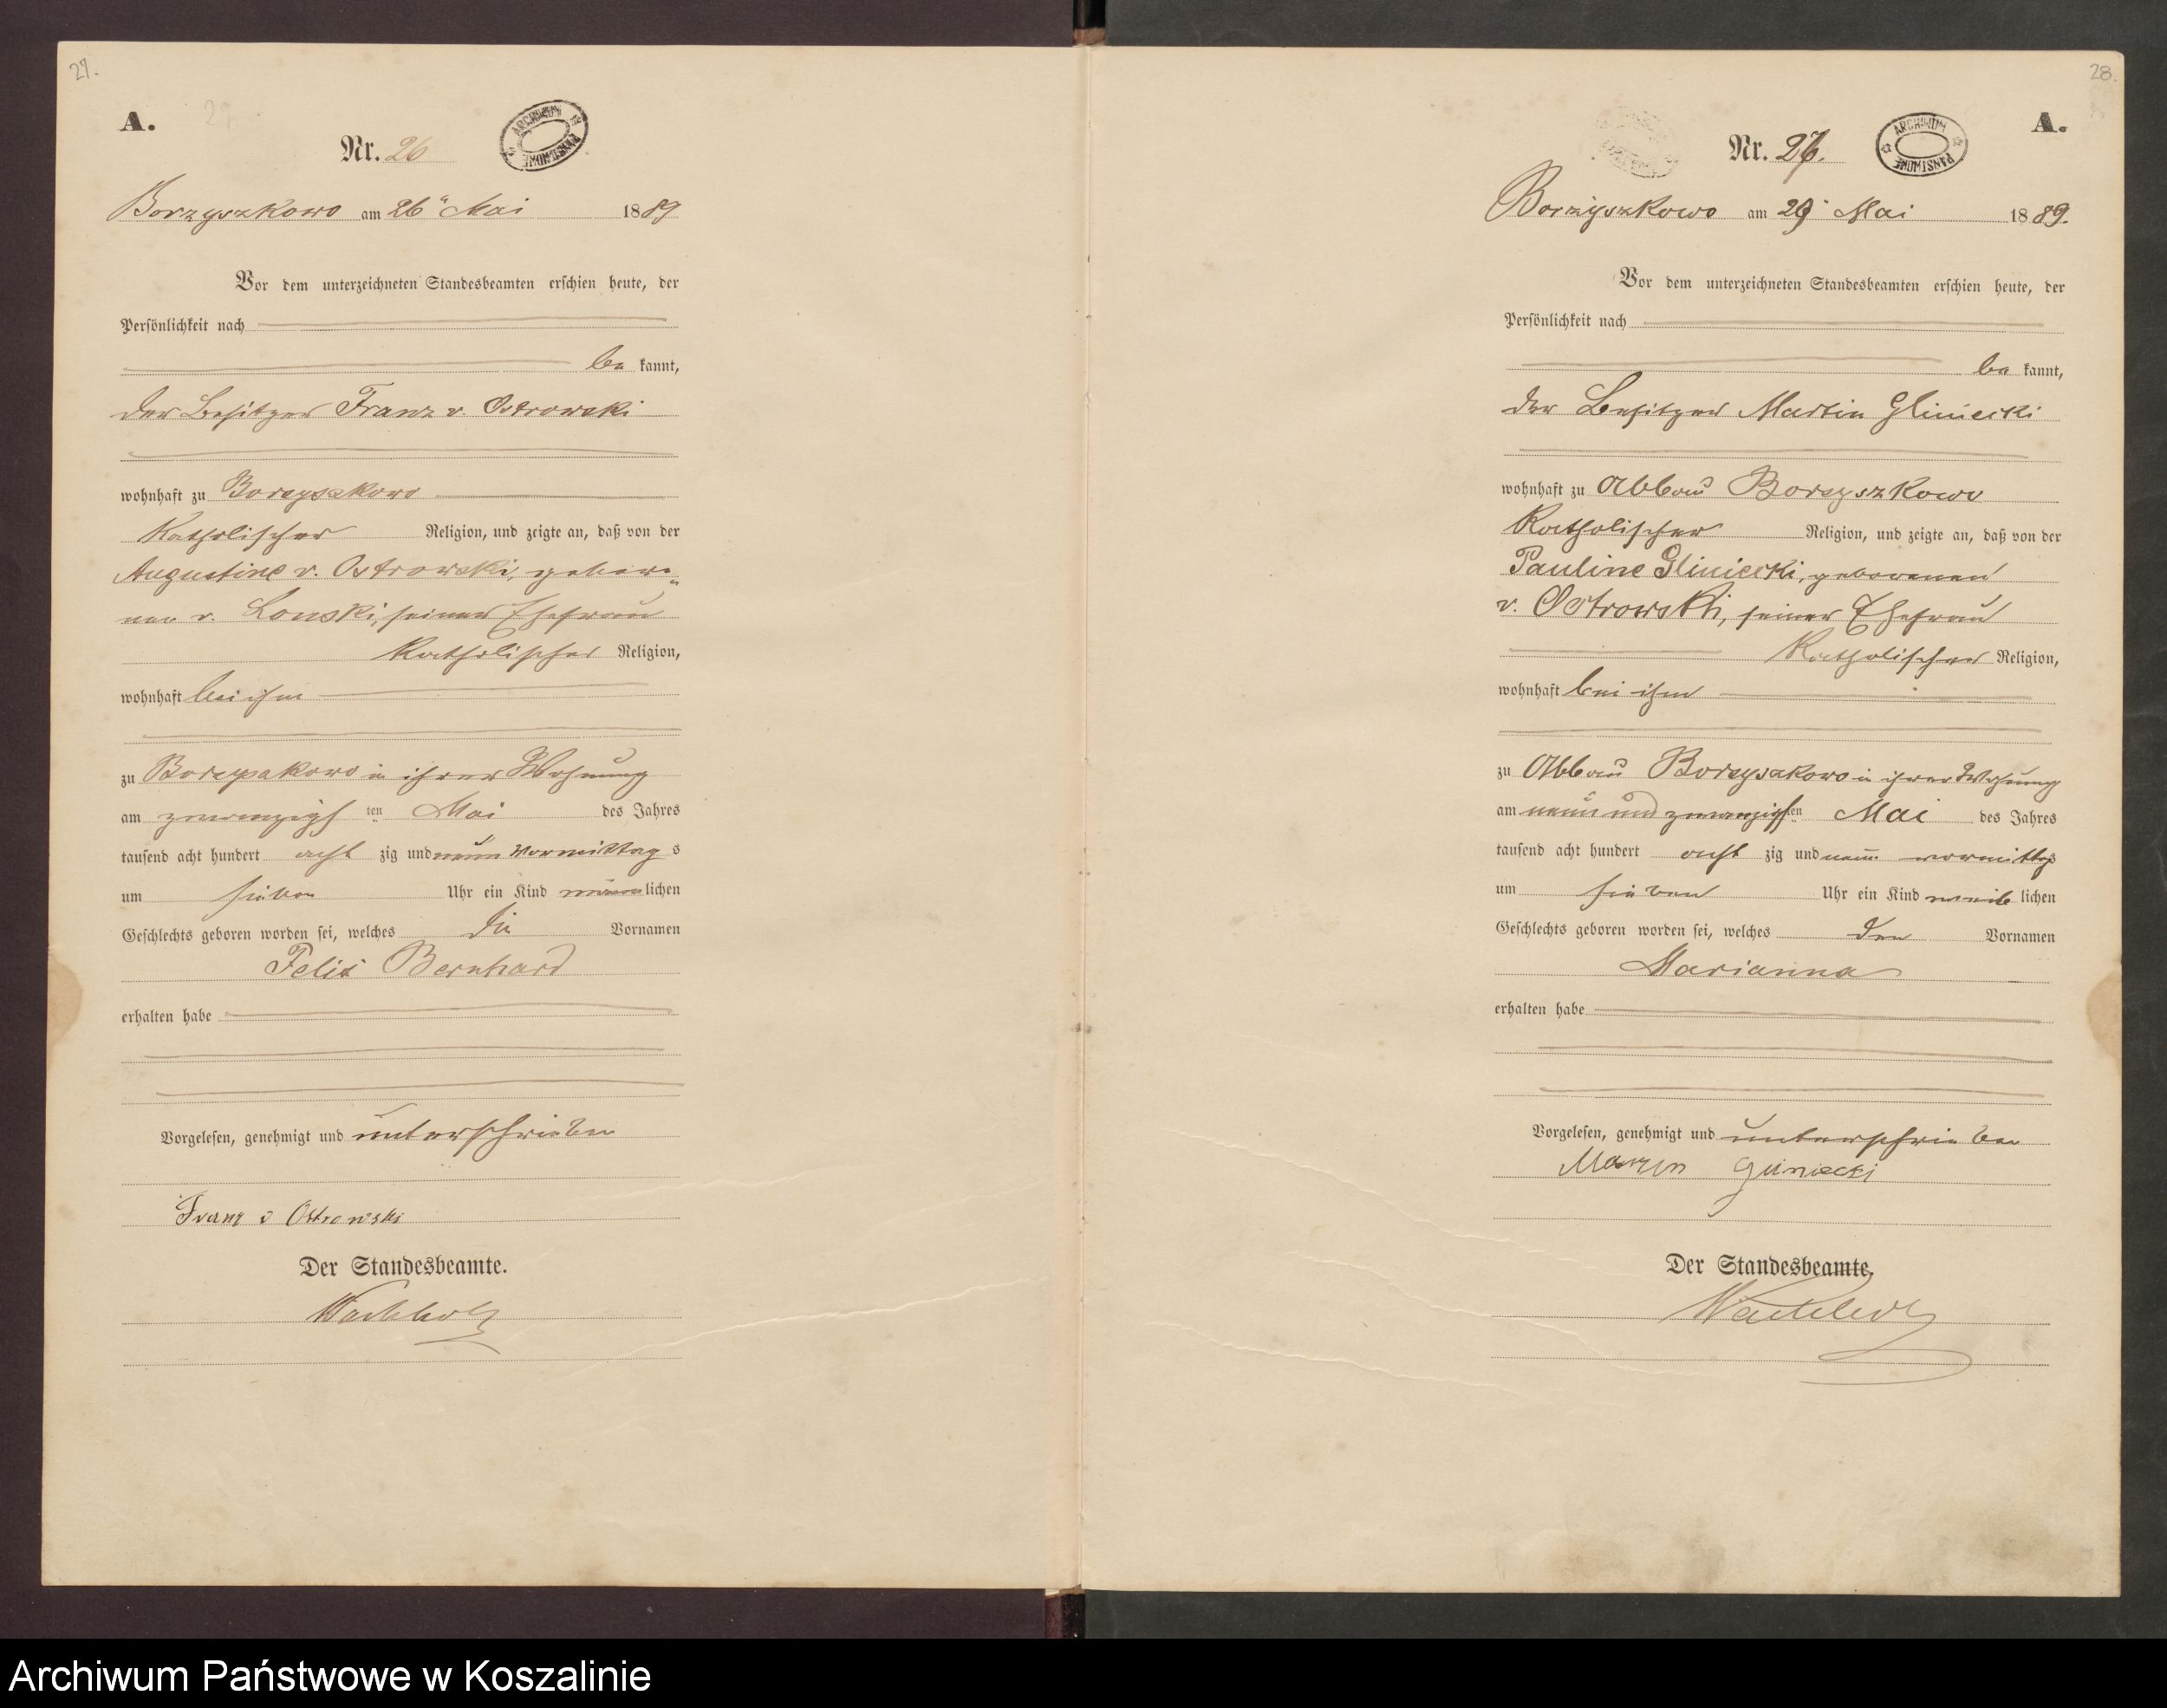 27.
A.
Nr. 26
ARCHIWUM PAŃSTWOWE
Borzyszkowo am 26ⁿ Mai 1889
Vor dem unterzeichneten Standesbeamten erschien heute, der
Persönlichkeit nach
be kannt,
der Besitzer Franz v. Ostrowski
wohnhaft zu Borzyszkowo
Katholischer Religion, und zeigte an, daß von der
Augustine v. Ostrowski, gebore„
nen v. Lonski, seiner Ehefrau
Katholischer Religion,
wohnhaft bei ihm
zu Borzyszkowo in ihrer Wohnung
am zwanzigsten Mai des Jahres
tausend acht hundert acht zig und neun Vormittag s
um sieben Uhr ein Kind männlichen
Geschlechts geboren worden sei, welches die Vornamen
Felix Bernhard
erhalten habe
Vorgelesen, genehmigt und unterschrieben
Franz v Ostrowski
Der Standesbeamte.
28.
A.
Nr. 27.
ARCHIWUM PAŃSTWOWE
Borzyszkowo am 29ⁿ Mai 1889.
Vor dem unterzeichneten Standesbeamten erschien heute, der
Persönlichkeit nach
be kannt,
der Besitzer Martin Gliniecki
wohnhaft zu Abbau Borzyszkowo
Katholischer Religion, und zeigte an, daß von der
Pauline Gliniecki, geborenen
v. Ostrowski, seiner Ehefrau
Katholischer Religion,
wohnhaft bei ihm
zu Abbau Borzyszkowo in ihrer Wohnung
am neun und zwanzigsten Mai des Jahres
tausend acht hundert acht zig und neun vormittags
um sieben Uhr ein Kind weib lichen
Geschlechts geboren worden sei, welches den Vornamen
Marianna
erhalten habe
Vorgelesen, genehmigt und unterschrieben
Marcin Gliniecki
Der Standesbeamte.
Archiwum Państwowe w Koszalinie